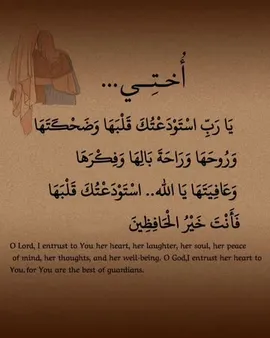 أُختِـــي...
يَا رَبِّ اسْتَوْدَعْتُكَ قَلْبَهَا وَضَحْكَتَهَا
وَرُوحَهَا وَرَاحَةَ بَالِهَا وَفِكْرَهَا
وَعَافِيَتَهَا يَا الله.. اسْتَوْدَعْتُكَ قَلْبَهَا
فَأَنْتَ خَيْرُ الْحَافِظِينَ
O Lord, I entrust to You her heart, her laughter, her soul, her peace
of mind, her thoughts, and her well-being. O God,I entrust her heart to
You,for You are the best of guardians.